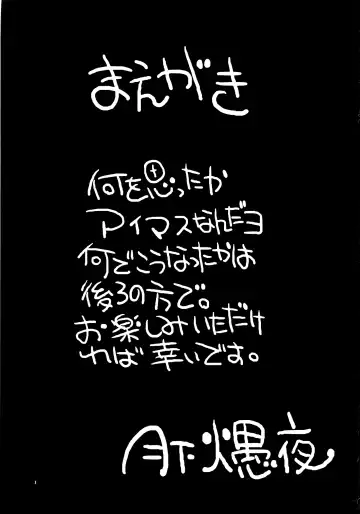 まえがき
何を思ったか
アイマスなんだヨ
何でこうなったかは
後ろの方で。
お楽しみいただけ
れば幸いです。
月下 夜